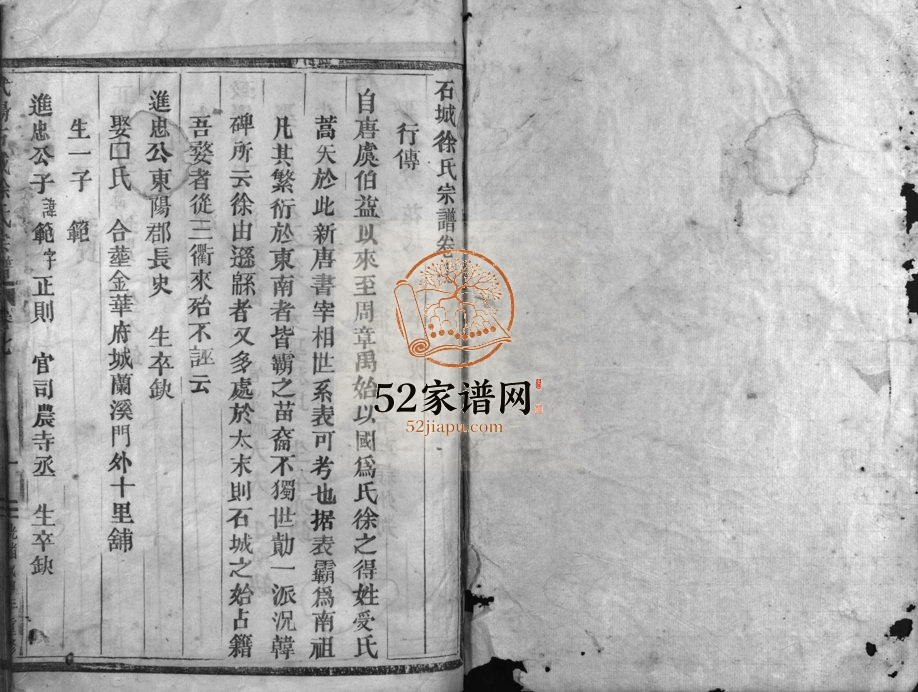 石城徐氏宗譜卷
行傳
自唐虞伯益以來至周章禹始以國爲氏徐之得姓受氏
蒿矢於此新唐書宰相世系表可考也据表霸爲南祖
凡其繁衍於東南者皆霸之苗裔不獨世勣一派況韓
碑所云徐由遜緜者又多處於太末則石城之始占籍
吾婺者從三衢來殆不誣云
進忠公東陽郡長史 生卒缺
娶口氏 合塟金華府城蘭溪門外十里舖
生一子 範
進忠公子 諱範 字正則 官司農寺丞 生卒缺
52家谱网
52jiapu.com